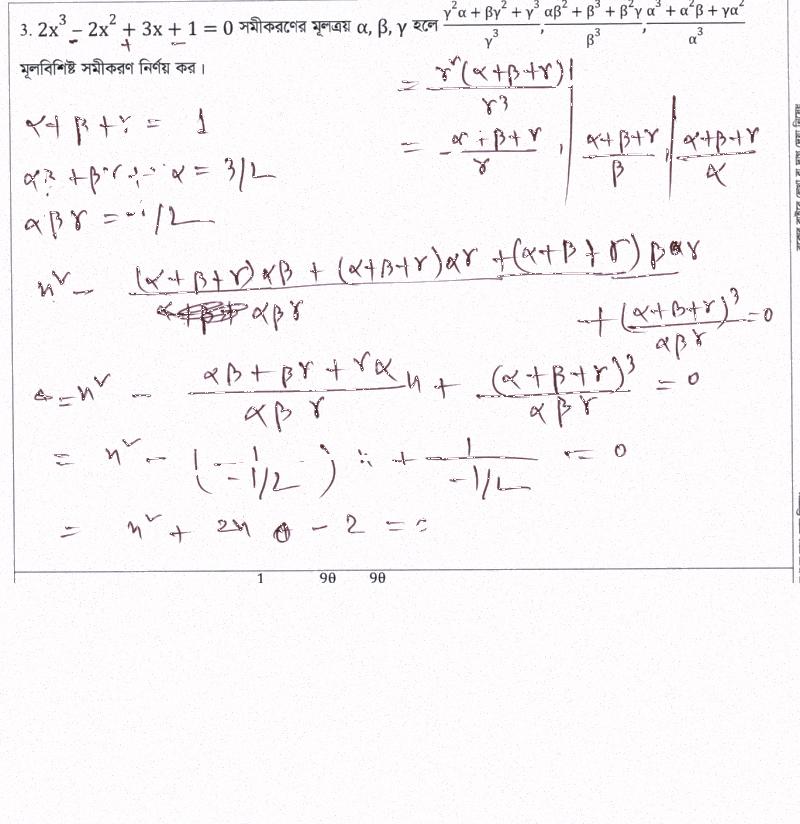 3. 2x³ − 2x² + 3x + 1 = 0 সমীকরণের মূলত্রয় α, β, γ হলে (γ²α + βγ² + γ³)/γ³, (αβ² + β³ + β²γ)/β³, (α³ + α²β + γα²)/α³
মূলবিশিষ্ট সমীকরণ নির্ণয় কর।
= γ²(α+β+γ)/γ³
α+β+γ = 1
= (α+β+γ)/γ, | (α+β+γ)/β, | (α+β+γ)/α
αβ + βγ + γα = 3/2
αβγ = -1/2
x² − ((α+β+γ)αβ + (α+β+γ)αγ + (α+β+γ)βγ)/(αβγ)
+ (α+β+γ)³/(αβγ) = 0
= x² − (αβ + βγ + γα)/(αβγ) x + (α+β+γ)³/(αβγ) = 0
= x² − (1/(-1/2)) + 1/(-1/2) = 0
= x² + 2x − 2 = 0
1 9θ 9θ